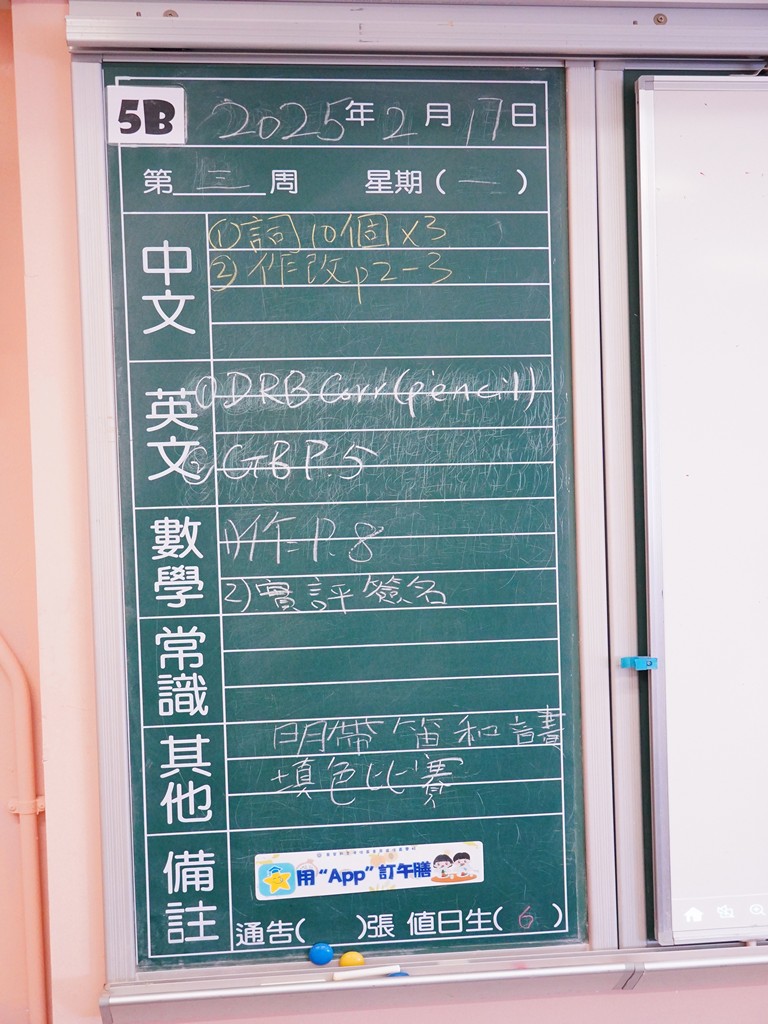 5B 2025年2月17日
第三周 星期(一)
中文
①詞10個x3
②作改p2-3
英文
①DRB Corr(pencil)
② GB P.5
數學
1)作 P.8
2)實評簽名
常識
其他
明帶笛和音書
填色比賽
備註
用“App”訂午膳
通告( )張 值日生(6)